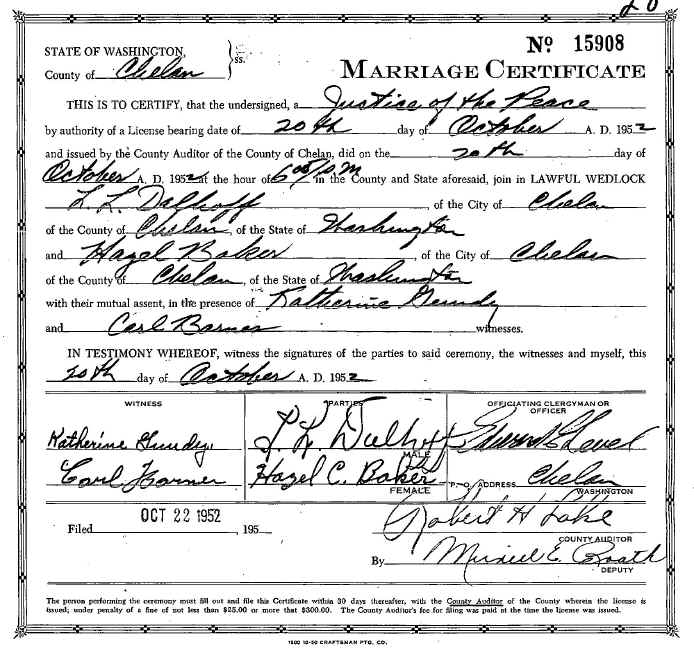 20
STATE OF WASHINGTON, ss. Nº 15908
County of Chelan MARRIAGE CERTIFICATE
THIS IS TO CERTIFY, that the undersigned, a Justice of the Peace
by authority of a License bearing date of 20th day of October A. D. 1952
and issued by the County Auditor of the County of Chelan, did on the 20th day of
October A. D. 1952 at the hour of 6 00/P.M in the County and State aforesaid, join in LAWFUL WEDLOCK
L. L. Dalhoff, of the City of Chelan
of the County of Chelan, of the State of Washington
and Hazel Baker, of the City of Chelan
of the County of Chelan, of the State of Washington
with their mutual assent, in the presence of Katherine Gundy
and Carl Barnes witnesses.
IN TESTIMONY WHEREOF, witness the signatures of the parties to said ceremony, the witnesses and myself, this
20th day of October A. D. 1952
WITNESS PARTIES OFFICIATING CLERGYMAN OR OFFICER
Katherine Gundy L. L. Dalhoff
MALE
Carl Barnes Hazel C. Baker P. O. ADDRESS Chelan
FEMALE WASHINGTON
Filed OCT 22 1952, 195 Robert H Lake
COUNTY AUDITOR
By E. Booth
DEPUTY
The person performing the ceremony must fill out and file this Certificate within 30 days thereafter, with the County Auditor of the County wherein the license is
issued; under penalty of a fine of not less than $25.00 or more that $300.00. The County Auditor's fee for filing was paid at the time the license was issued.
1500 10-50 CRAFTSMAN PTG. CO.